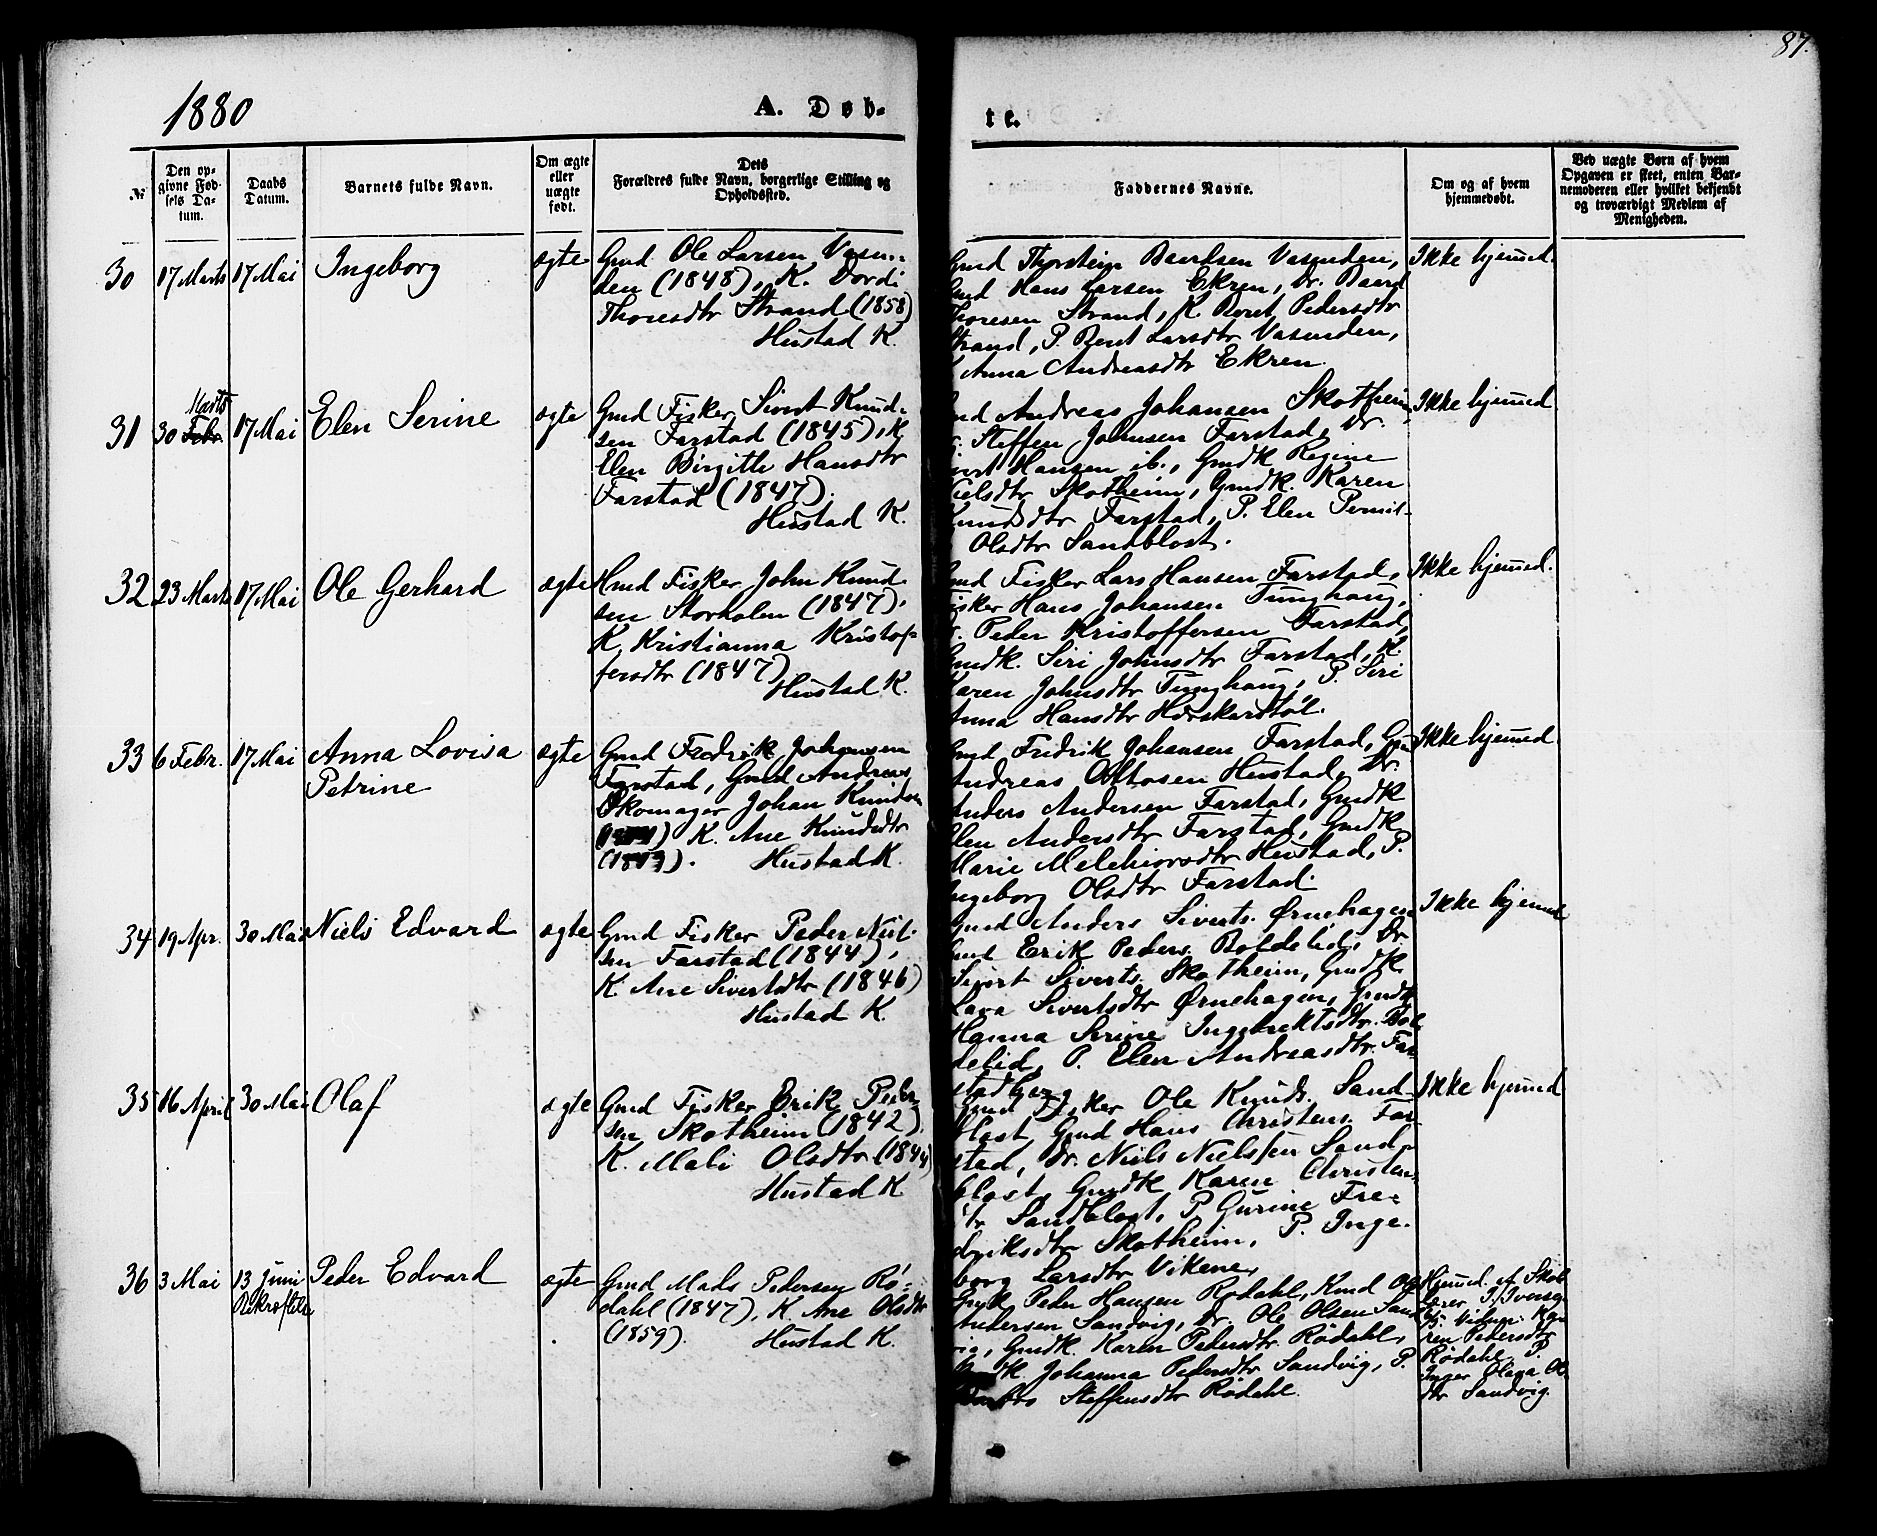 87.
1880
A. Døb-
te.
№
Den op-
givne Fød-
sels Da-
tum.
Daabs
Datum.
Barnets fulde Navn.
Om ægte
eller
uægte
født.
Dets
Forældres fulde Navn, borgerlige Stilling og
Opholdssted.
Faddernes Navne.
Om og af hvem
hjemmedøbt.
Ved uægte Børn af hvem
Opgaven er skeet, enten Bar-
nemoderen eller hvilket bekjendt
og troværdigt Medlem af
Menigheden.
30
17 Marts
17 Mai
Ingeborg
ægte
Gmd Ole Larsen Vasen-
den (1848), K. Dordi
Thoresdtr Strand (1858)
Hustad K.
Gmd Thorstein Baardsen Vasenden,
Gmd Hans Larsen Ekren, Dr. Baard
Thoresen Strand, K. Beret Pedersdtr
Strand, P. Beret Larsdtr Vasenden,
K Anna Andreasdtr Ekren.
Ikke hjemmed.
31
Marts
30 Febr.
17 Mai
Elen Serine
ægte
Gmd Fisker Sivert Knud-
sen Farstad (1845), K.
Elen Birgitte Hansdtr
Farstad (1847).
Hustad K.
Gmd Andreas Johansen Skotheim,
Dr. Steffen Johnsen Farstad, Dr.
Sivert Hansen ib., Gmdk Regine
Nielsdtr Skotheim, Gmdk. Karen
Knudsdtr Farstad, P. Elen Pernil-
Olsdtr Sandblost.
Ikke hjemmed.
32
23 Marts
17 Mai
Ole Gerhard
ægte
Hmd Fisker John Knud-
sen Storholen (1847).
K. Kristianna Kristof-
fersdtr (1847)
Hustad K.
Gmd Fisker Lars Hansen Farstad,
Fisker Hans Johansen Tunghaug,
Dr. Peder Kristoffersen Farstad,
Gmdk. Siri Johnsdtr Farstad, K.
Karen Johnsdtr Tunghaug, P. Siri
Anna Hansdtr Horskarstøl.
Ikke hjemmed.
33
6 Febr.
17 Mai
Anna Lovisa
Petrine
ægte
Gmd Fredrik Johansen
Farstad, Gmd Andreas
Skomager Johan Knudsen
K. Ane Knudsdtr
Hustad K.
Gmd Fredrik Johansen Farstad, Gmd
Andreas Ottosen Hustad, Dr.
Anders Andersen Farstad, Gmdk
Elen Andersdtr Farstad, Gmdk
Marie Melchiorsdtr Hustad, P.
Ingeborg Olsdtr Farstad.
Ikke hjemmed.
34
19 Apr.
30 Mai
Niels Edvard
ægte
Gmd Fisker Peder Niel-
sen Farstad (1844),
K. Ane Sivertsdtr (1846)
Hustad K.
Gmd Anders Siverts. Ørnehagen
Gmd Erik Peders. Boldelid, Dr
Sivert Siverts. Skotheim, Gmdk
Lava Sivertsdtr Ørnehagen, Gmdk
Hanna Serine Ingebrektsdtr. Bol-
delid, P. Elen Andreasdtr. Far-
stadberg
Ikke hjemmed
35
16 April
30 Mai
Olaf
ægte
Gmd Fisker Erik Peder-
sen Skotheim (1842),
K. Mali Olsdtr (1844)
Hustad K
Gmd Fisker Ole Knuds. Sand-
blost, Gmd Hans Christens. Far-
stad, Dr. Niels Nielssen Sand-
blost, Gmdk Karen Christens-
dtr Sandblost, P Gurine Fre-
driksdtr Skotheim, P. Inge-
borg Larsdtr Vikene
Ikke hjemmed
36
3 Mai
13 Juni
Bekræftelse
Peder Edvard
ægte
Gmd Mads Pedersen Rø-
dahl (1847), K. Ane Olsdtr
(1859).
Hustad K.
Gmd Peder Hansen Rødahl, Kmd Ole
Andersen Sandvig, Dr. Ole Olsen Sand-
vig, Gmdk. Karen Pedersdtr Rødahl,
Gmdk Johanna Pedersdtr Sandvig, P.
Steffensdtr Rødahl.
Hjemmed. af Skol
lærer I. Iversen
Vidner: Ka-
ren Pedersdtr
Rødahl, P.
Inger Olava Ols-
dtr Sandvig.